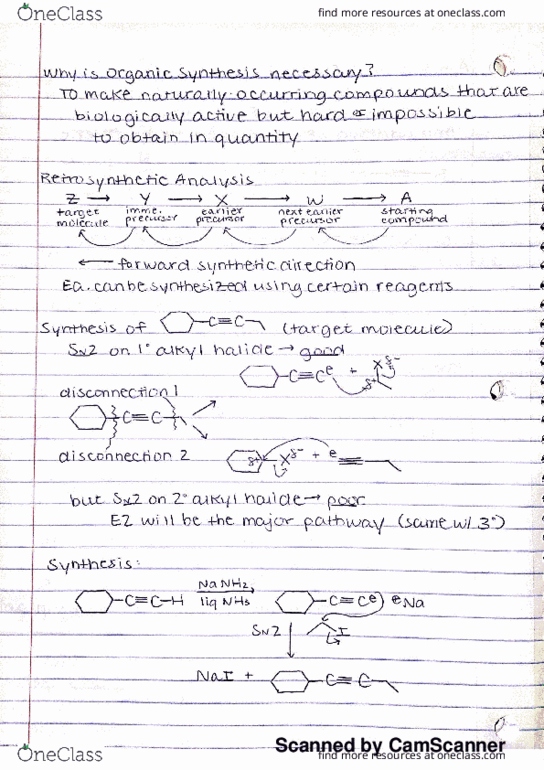 OneClass
find more resources at oneclass.com
Why is Organic Synthesis necessary?
To make naturally-occurring compounds that are
biologically active but hard or impossible
to obtain in quantity
Retrosynthetic Analysis
Z → Y → X → W → A
target molecule imme. precursor earlier precursor next earlier precursor starting compound
← forward synthetic direction
Ea. can be synthesized using certain reagents
Synthesis of -C≡C- (target molecule)
SN2 on 1° alkyl halide → good
-C≡C⊖ + X δ- δ+
disconnection 1
-C≡C-
disconnection 2
δ+ X δ- + ⊖
but SN2 on 2° alkyl halide → poor
E2 will be the major pathway (same w/ 3°)
Synthesis:
-C≡C-H NaNH2 liq NH3 -C≡C⊖ ⊕Na
SN2 I
NaI + -C≡C-
Scanned by CamScanner
OneClass
find more resources at oneclass.com